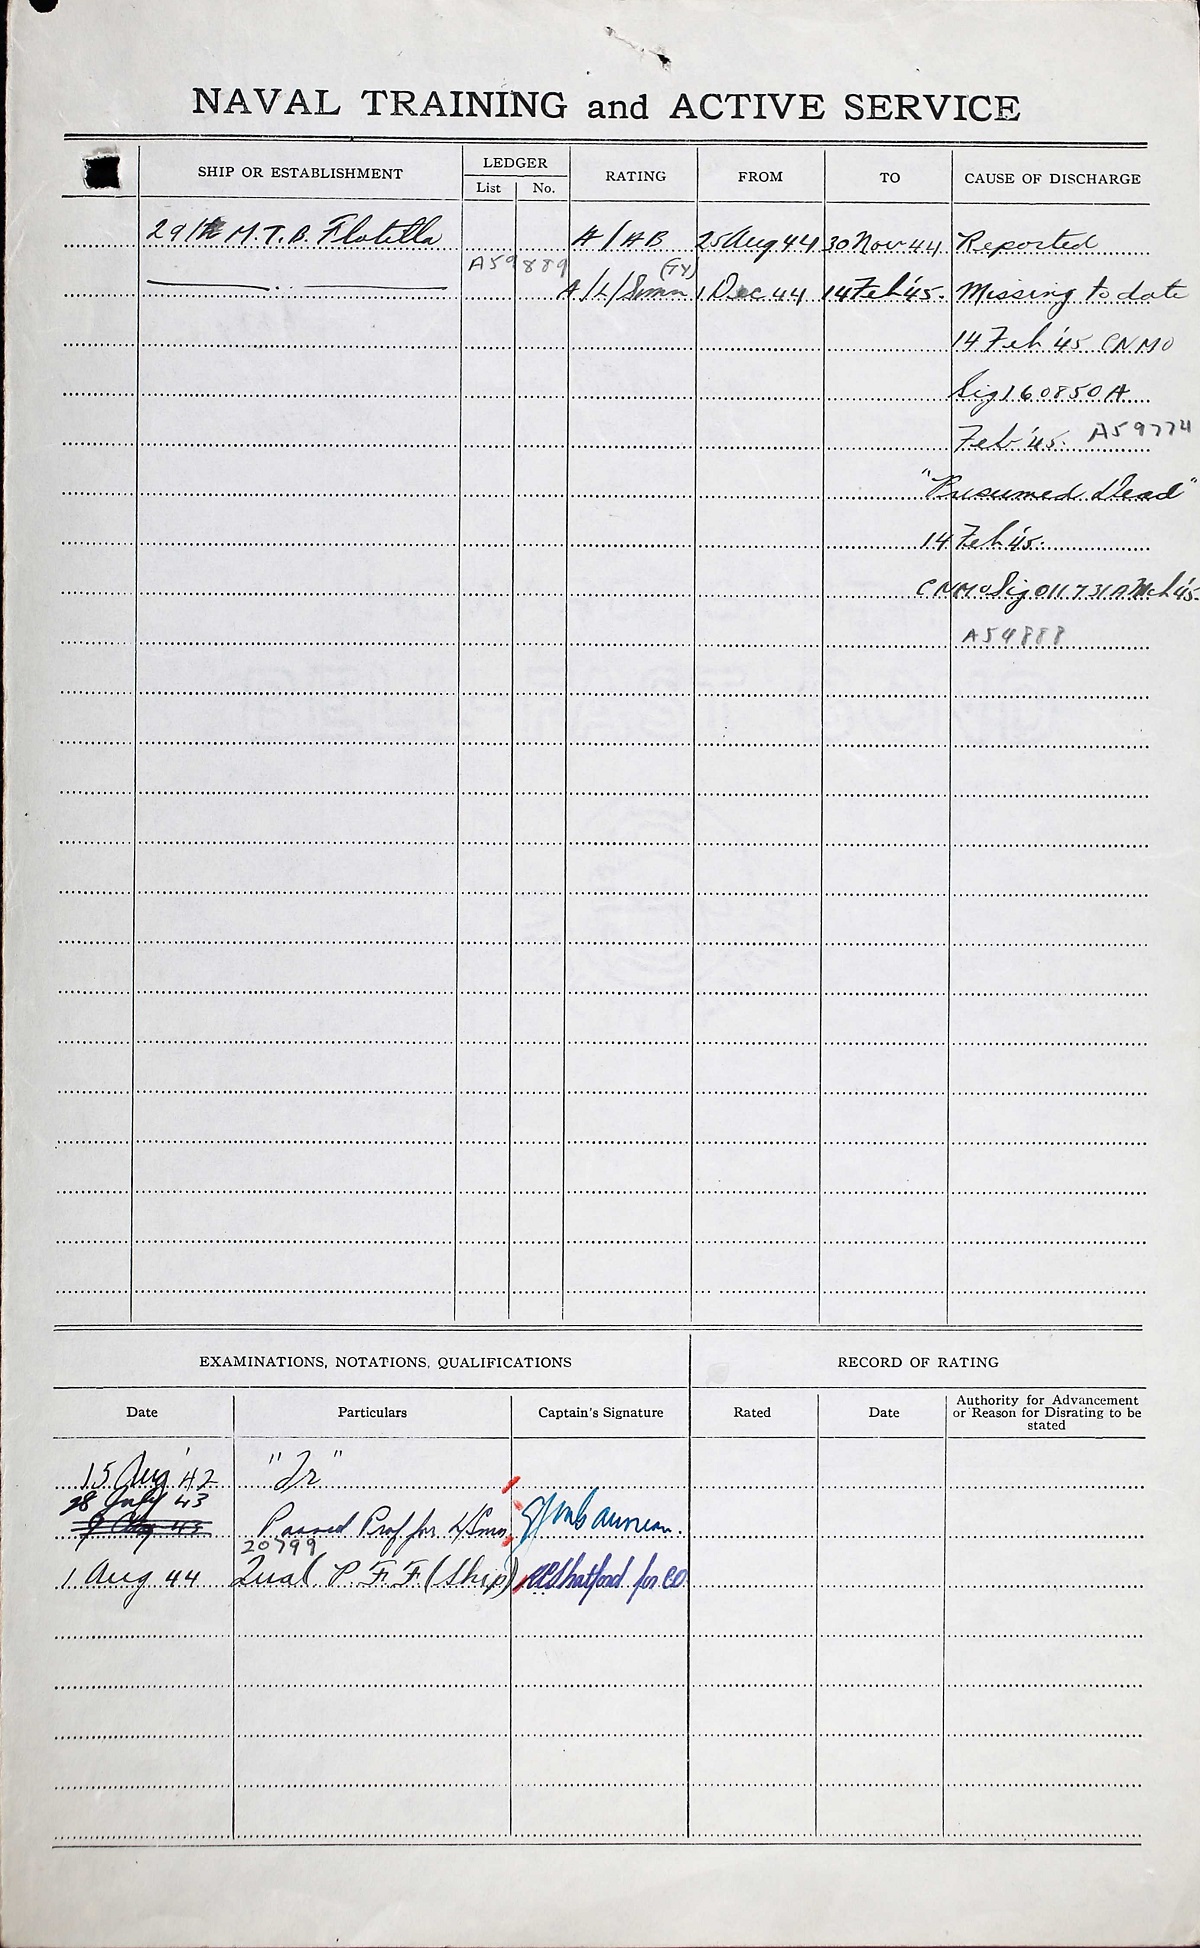 NAVAL TRAINING and ACTIVE SERVICE
SHIP OR ESTABLISHMENT LEDGER RATING FROM TO CAUSE OF DISCHARGE
List No.
29th M.T.B. Flotilla A/AB 25 Aug 44 30 Nov 44 Reported
A59889 (TY)
A/L/Smn 1 Dec 44 14 Feb '45. Missing to date
14 Feb '45 CNMO
Sig 160850A
Feb '45. A59774
"Presumed Dead"
14 Feb '45.
CNMO Sig 011731A Mch '45.
A54888
EXAMINATIONS, NOTATIONS, QUALIFICATIONS RECORD OF RATING
Date Particulars Captain's Signature Rated Date Authority for Advancement or Reason for Disrating to be stated
15 Aug '42 "Jr"
28 July 43
9 Aug 43 Passed Prof for L/Smn
20799
1 Aug 44 Qual P.F.F. (Ship) Shatford for CO